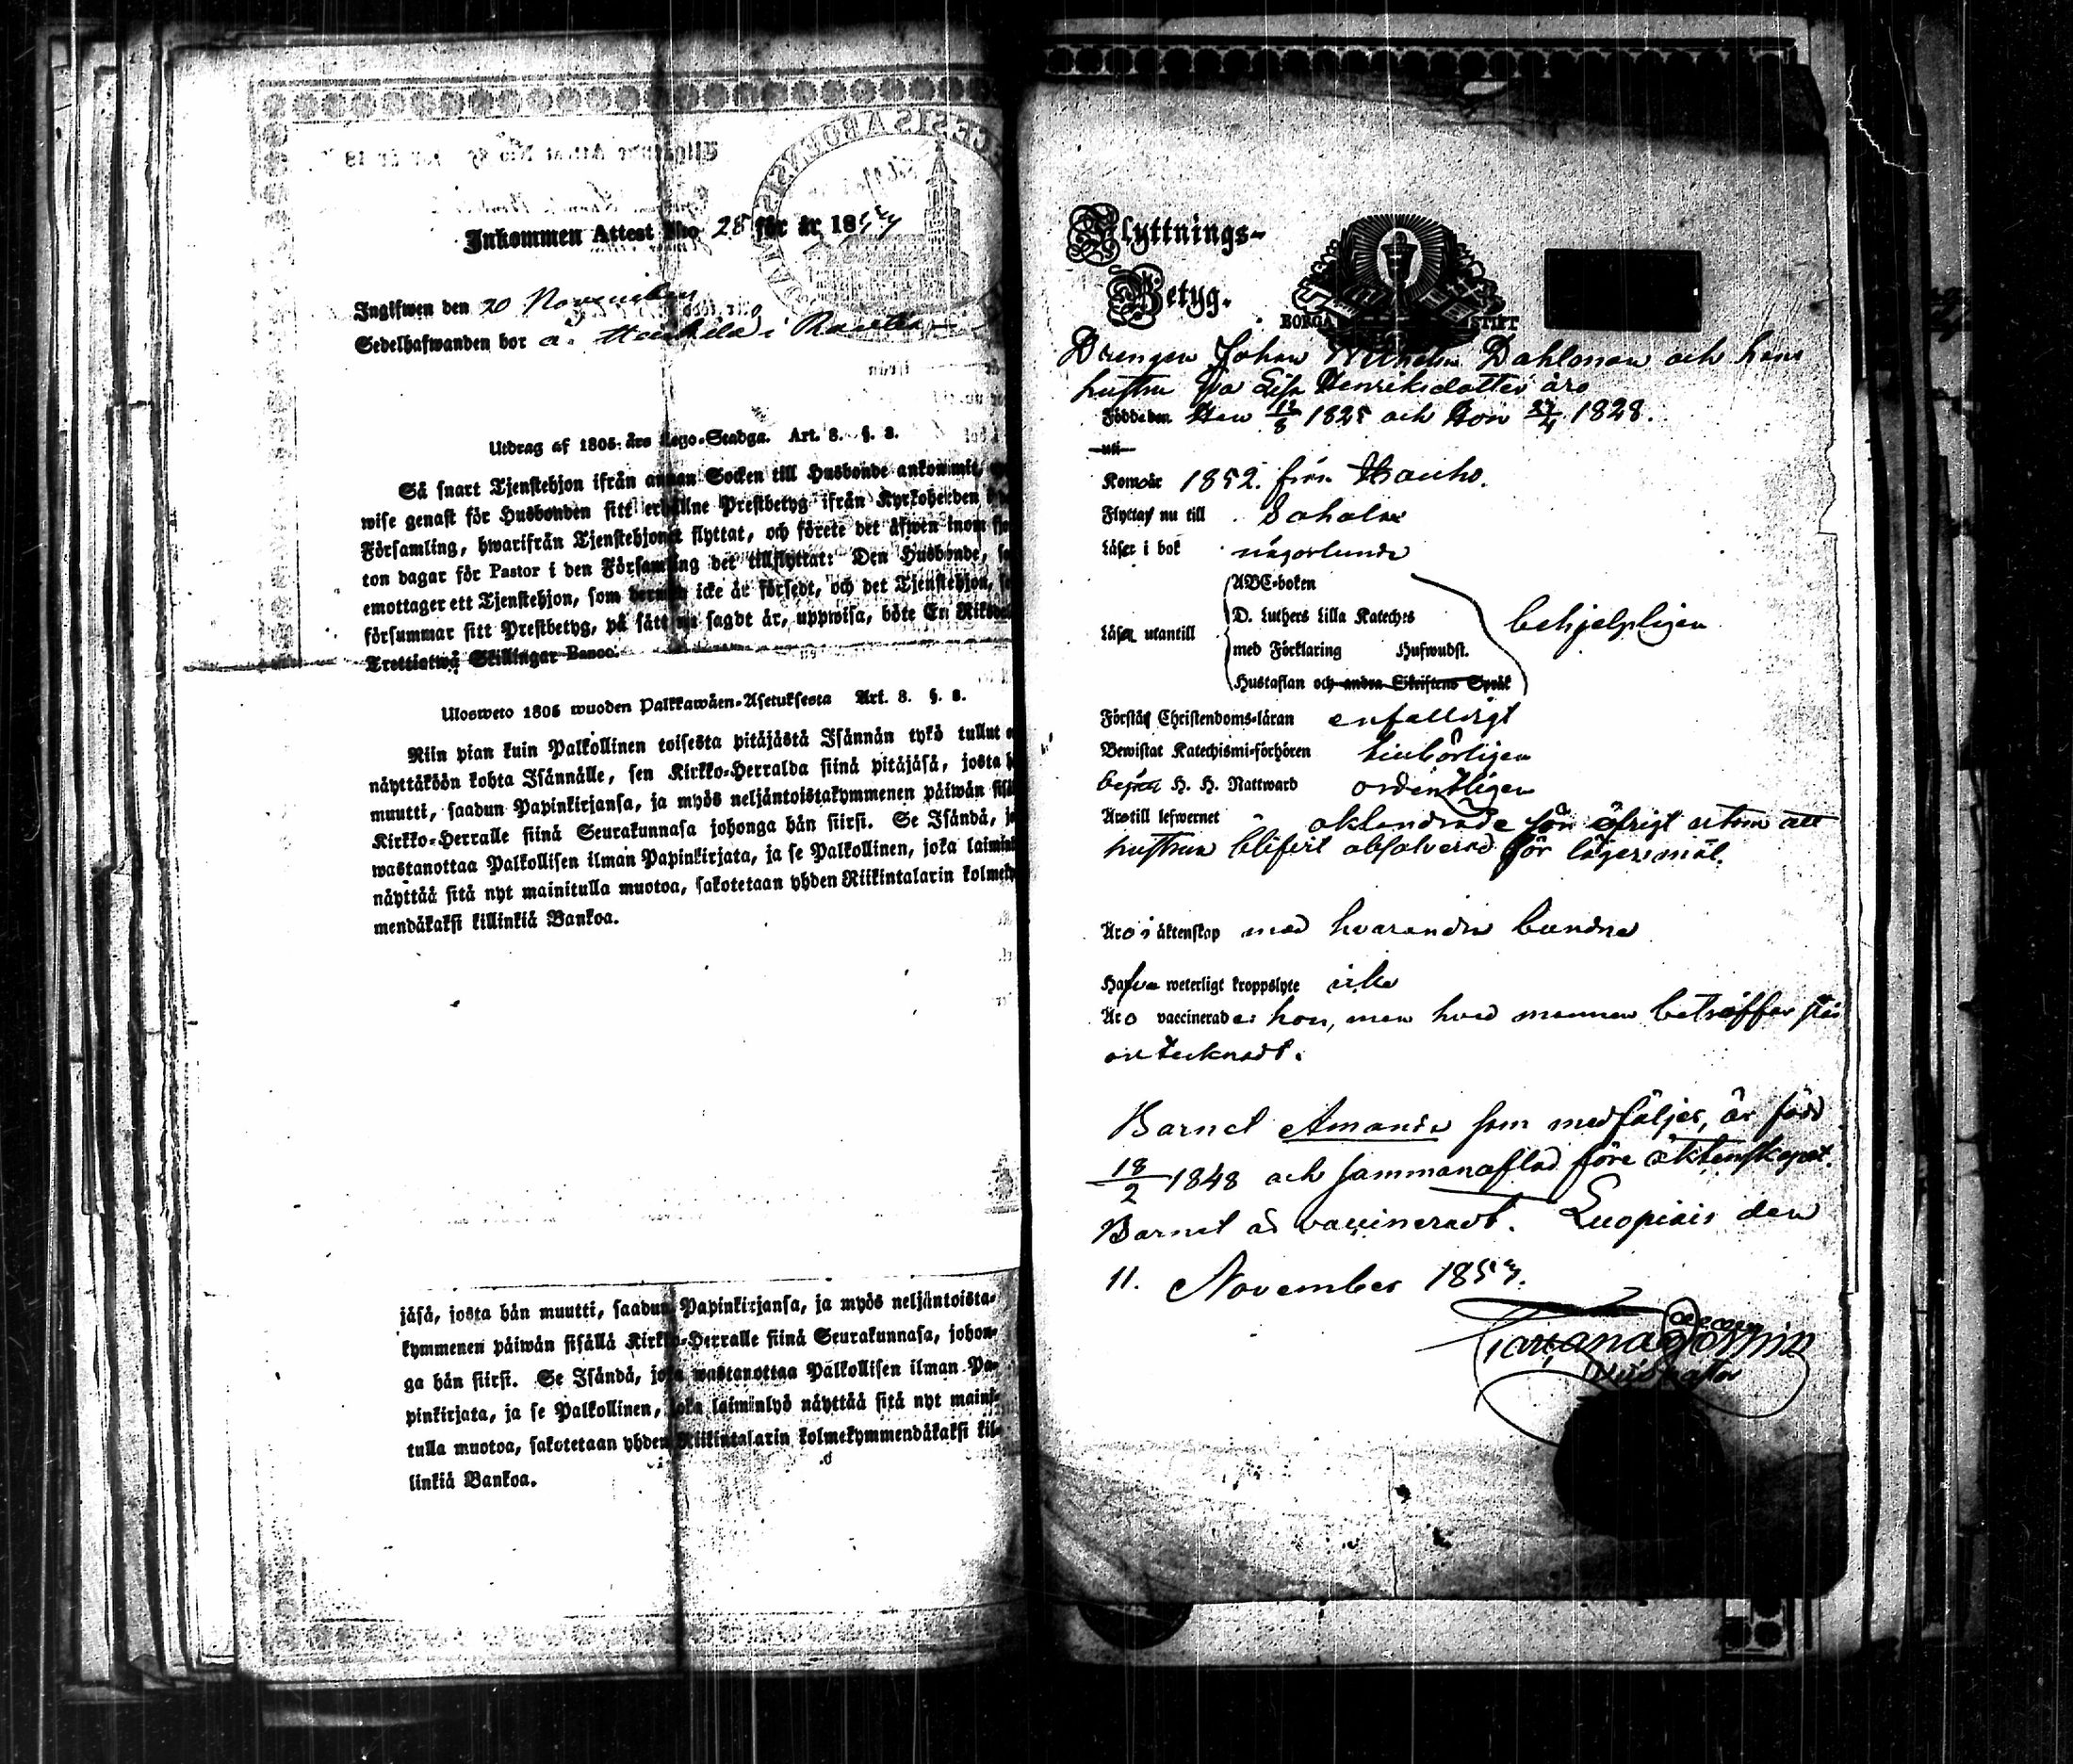 Inkommen Attest N:o 28 för år 1854
Ingifwen den 20 November
Sedelhafwanden bor å Haukila i
Utdrag af 1805 års Lego-Stadga. Art. 8. §. 2.
Så snart Tjenstehjon ifrån annan Socken till Husbonde ankommit,
wise genast för Husbonden sitt erhållne Prestbetyg ifrån Kyrkoherden
Församling, hwarifrån Tjenstehjonet flyttat, och förete det äfwen inom
ton dagar för Pastor i den Församling det tillflyttat: Den Husbonde,
emottager ett Tjenstehjon, som dermed icke är försedt, och det Tjenstehjon,
försummar sitt Prestbetyg, på sätt nu sagdt är, uppwisa, böte En
Trettiotwå Skillingar Banco.
Ulosweto 1805 wuoden Palkkawäen-Asetuksesta Art. 8. §. 2.
Niin pian kuin Palkollinen toisesta pitäjästä Isännän tykö tullut
näyttäköön kohta Isännälle, sen Kirkko-Herralda siinä pitäjäsä, josta
muutti, saadun Papinkirjansa, ja myös neljäntoistakymmenen päiwän
Kirkko-Herralle siinä Seurakunnasa johonga hän siirsi. Se Isändä,
wastanottaa Palkollisen ilman Papinkirjata, ja se Palkollinen, joka
näyttää sitä nyt mainitulla muotoa, sakotetaan yhden Riikintalarin
mendäkaksi killinkiä Bankoa.
jäsä, josta hän muutti, saadun Papinkirjansa, ja myös neljäntoista-
kymmenen päiwän sisällä Kirkko-Herralle siinä Seurakunnasa, johon-
ga hän siirsi. Se Isändä, joka wastanottaa Palkollisen ilman Pa-
pinkirjata, ja se Palkollinen, joka laiminlyö näyttää sitä nyt maini-
tulla muotoa, sakotetaan yhden Riikintalarin kolmekymmendäkaksi kil-
linkiä Bankoa.
Flyttnings-
Betyg.
BORGÅ STIFT
Drengen Johan Wilhelm Dahlman och hans
hustru Eva Lisa Henriksdotter äro
Födde den Han 12/8 1825 och Hon 27/4 1828.
uti
Kom år 1852 från Hauho.
Flyttar nu till Sahalax
Läser i bok någorlunda
ABC-boken
D. Luthers Lilla Kateches
Läser utantill
behjelpligen
med Förklaring Hufwudst.
Hustaflan och andra Skriftens Språk
Förstår Christendoms-läran enfalligt
Bewistat Katechismi-förhören tillbörligen
begått H. H. Nattward ordentligen
Äro till lefwernet oklandrade för öfrigt utom att
hustrun blifvit absolverad för lägersmål.
Äro i äktenskap med hvarandra bundna
Hafva weterligt kroppslyte icke
Äro vaccinerade: hon, men hvad mannen beträffar står
antecknadt.
Barnet Amanda som medföljer, är född
18/2 1848 och sammanaflad före äktenskapet.
Barnet är vaccineradt. Luopiois den
11. November 1854.